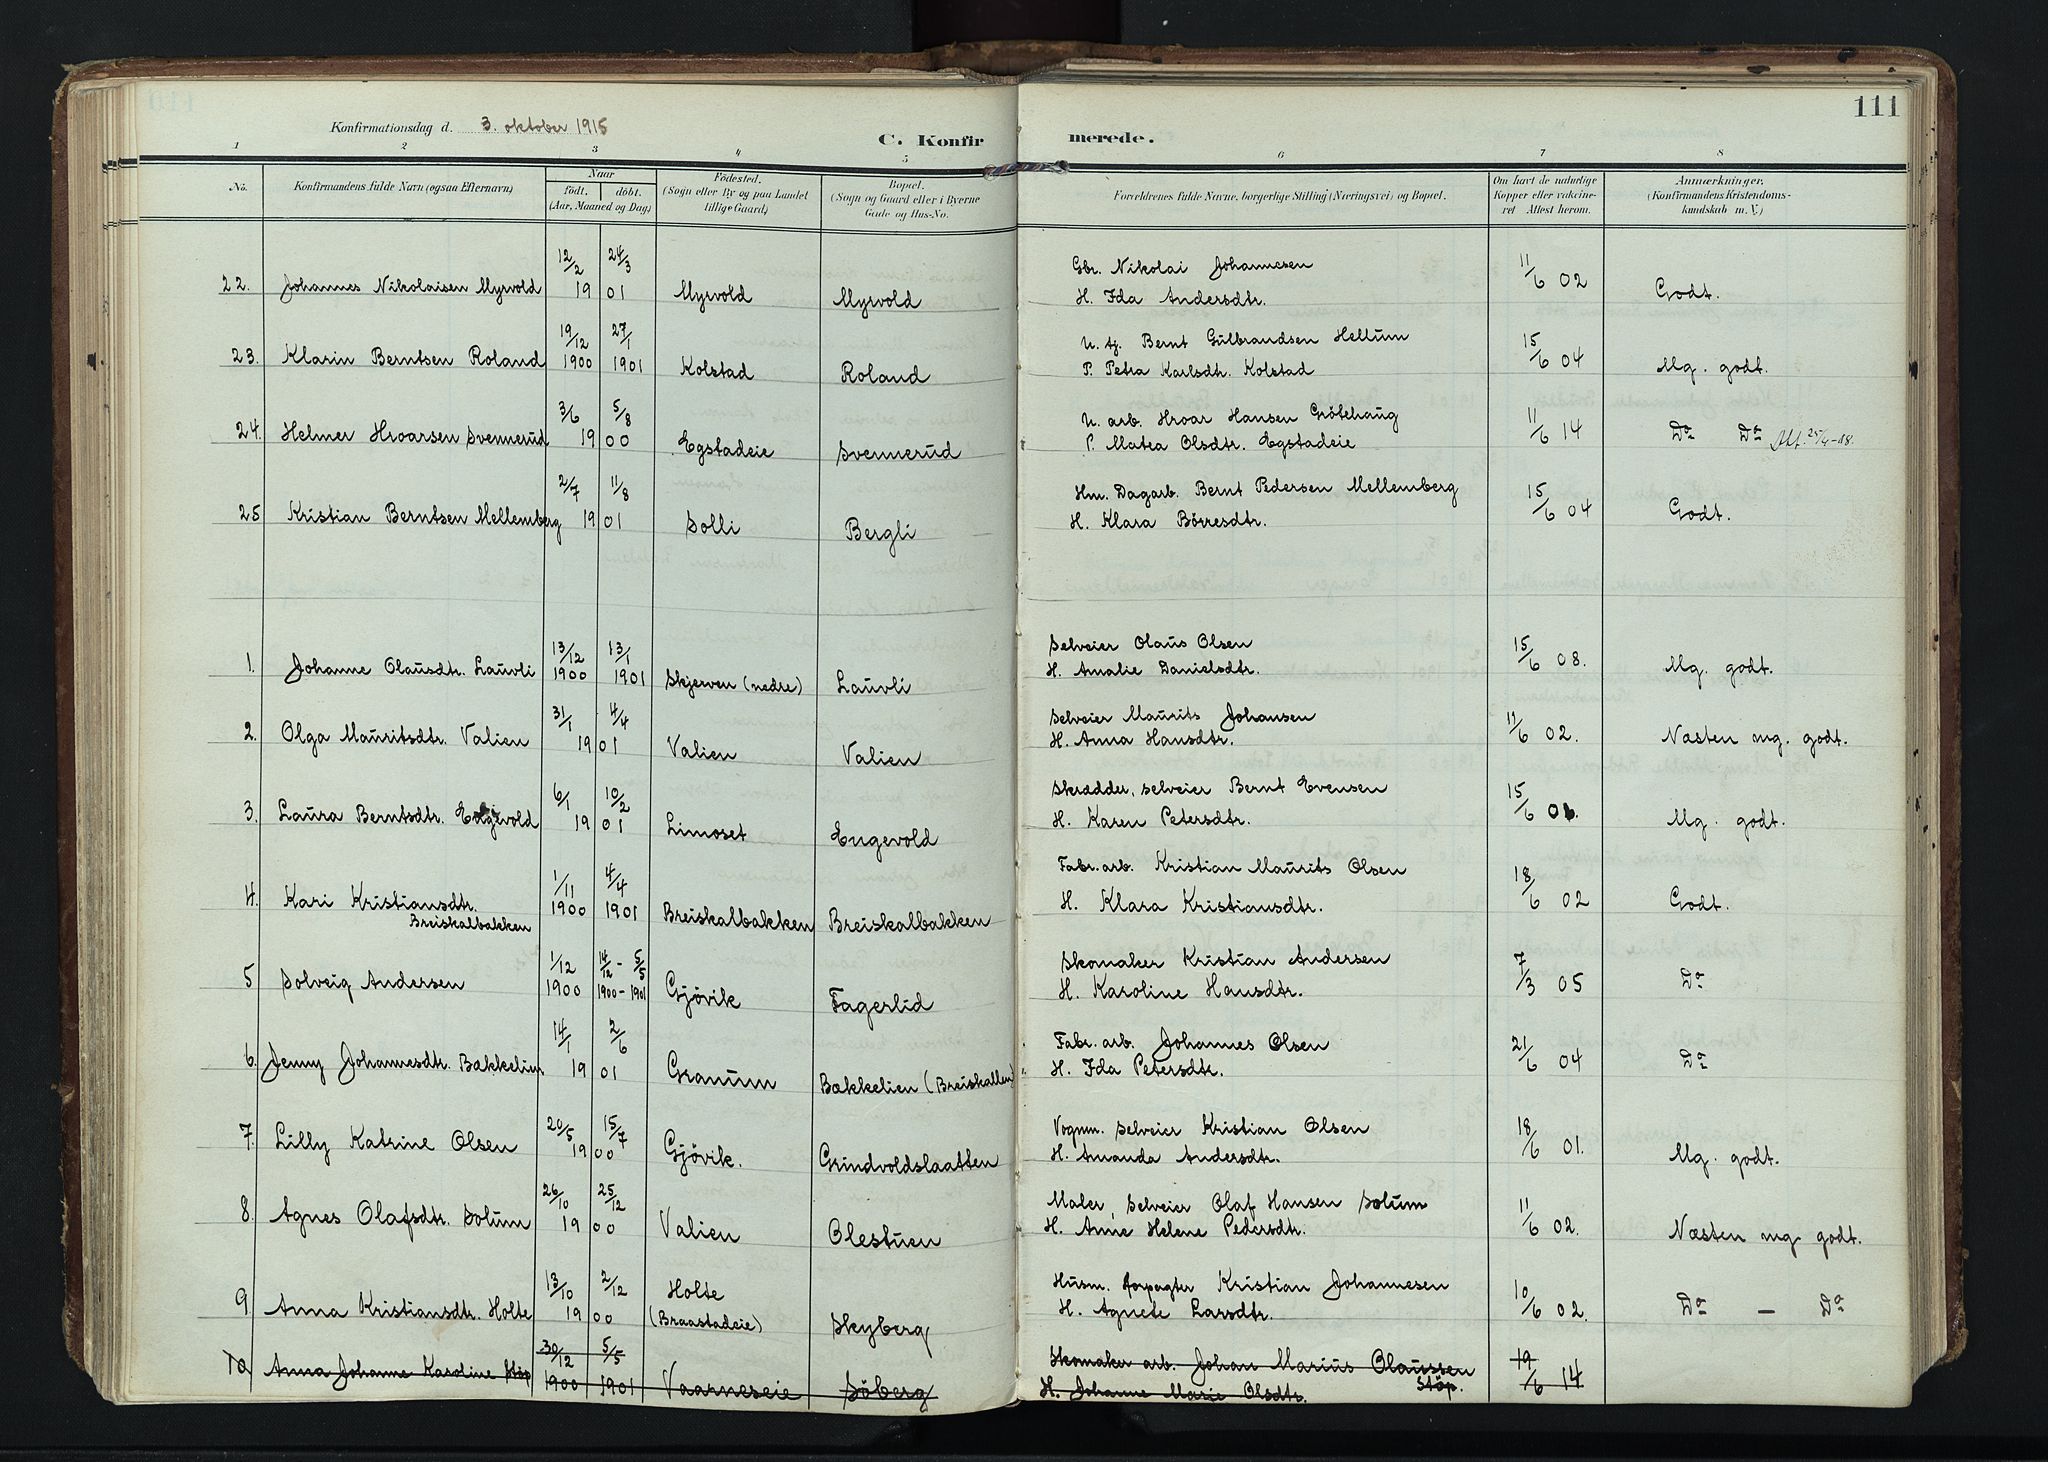 111
Konfirmationsdag d. 3. oktober 1915
C. Konfirmerede.
1 2 3 4 5 6 7 8
No. Konfirmandens fulde Navn (ogsaa Efternavn) Naar født. døbt. (Aar, Maaned og Dag) Fødested. (Sogn eller By og paa Landet tillige Gaard) Bopæl. (Sogn og Gaard eller i Byerne Gade og Hus-No. Forældrenes fulde Navne, borgerlige Stilling (Næringsvei) og Bopæl. Om havt de naturlige Kopper eller vaccineret Attest herom. Anmærkninger. (Konfirmandens Kristendomskundskab m. V.)
12/2 24/3 Gbr. Nikolai Johannesen 11/6 02
22. Johannes Nikolaisen Myrvold 19 01 Myrvold Myrvold H. Ida Andersdtr. Godt.
19/12 27/1 U. tj. Bernt Gulbrandsen Hellum 15/6 04
23. Klarin Berntsen Roland 1900 1901 Kolstad Roland P. Petra Karlsdtr. Kolstad Mg. godt.
3/6 5/8 U. arb. Hroar Hansen Grötehaug 11/6 14
24. Helmer Hroarsen Svennerud 19 00 Egstadeie Svennerud P. Matea Olsdtr. Egstadeie Do Do
2/7 11/8 Hm. Dagarb. Bernt Pedersen Mellemberg 15/6 04
25 Kristian Berntsen Mellemberg 19 01 Solli Bergli H. Klara Börresdtr. Godt.
13/12 13/1 Selveier Olaus Olsen 15/6 08.
1. Johanne Olausdtr. Lauvli 1900 1901 Skjerven (nedre) Lauvli H. Amalie Danielsdtr. Mg. godt.
31/1 4/4 Selveier Maurits Johansen 11/6 02.
2. Olga Mauritsdtr. Valien 19 01 Valien Valien H. Anna Hansdtr. Næsten mg. godt.
6/1 10/2 Skrædder, selveier Bernt Evensen 15/6
3. Laura Berntsdtr. Engevold 19 01 Limoset Engevold H. Karen Petersdtr. Mg. godt.
1/11 4/4 Fabr. arb. Kristian Maurits Olsen 18/6 02
4. Kari Kristiansdtr. 1900 1901 Breiskalbakken Breiskalbakken H. Klara Kristiansdtr. Godt.
Breiskalbakken
1/12 14/12 - 5/5 Skomaker Kristian Andersen 7/3 05
5 Solveig Andersen 1900 1900-1901 Gjövik Fagerlid H. Karoline Hansdtr. Do
14/1 2/6 Fabr. arb. Johannes Olsen 21/6 04
6. Jenny Johannesdtr. Bækkelien 19 01 Granum Bækkelien (Breiskallen) H. Ida Petersdtr. Do
20/5 15/7 Vognm. Selveier Kristian Olsen 18/6 01.
7. Lilly Katrine Olsen 19 00 Gjövik. Grindvoldslaatten H. Amanda Andersdtr. Mg. godt.
26/10 25/12 Maler, Selveier Olaf Hansen Solum 11/6 02.
8. Agnes Olafsdtr. Solum 19 00 Valien Olestuen H. Anne Helene Pedersdtr. Næsten mg godt.
13/10 2/12 Holte Husm. forpagter Kristian Johannesen 10/6 02.
9. Anna Kristiansdtr. Holte 19 00 (Braastadeie) Skyberg H. Agnete Larsdtr. Do - Do
30/12 5/5 Skomaker arb. Johan Marius Olaussen Stöp. 19/6 14
10 Anna Johanne Karoline Stöp 1900 1901 Vaarneseie Söberg H. Johanne Marie Olsdtr.